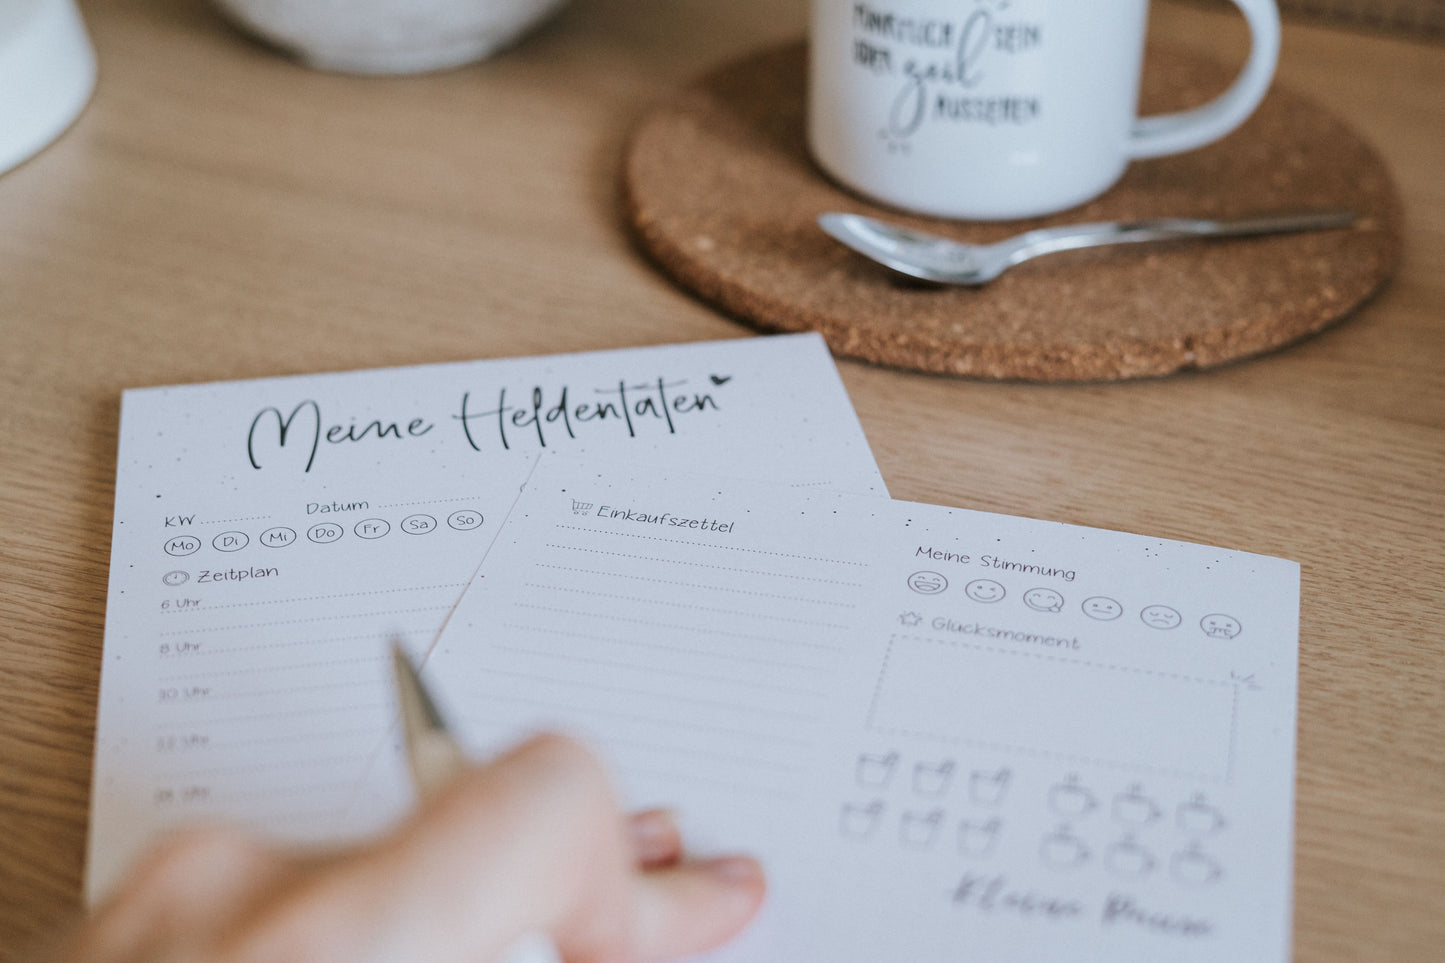 PÜNKTLICH SEIN
ODER geil
AUSSEHEN
Meine Heldentaten
KW Datum
Mo Di Mi Do Fr Sa So
Zeitplan
6 Uhr
8 Uhr
10 Uhr
12 Uhr
Einkaufszettel
Meine Stimmung
Glücksmoment